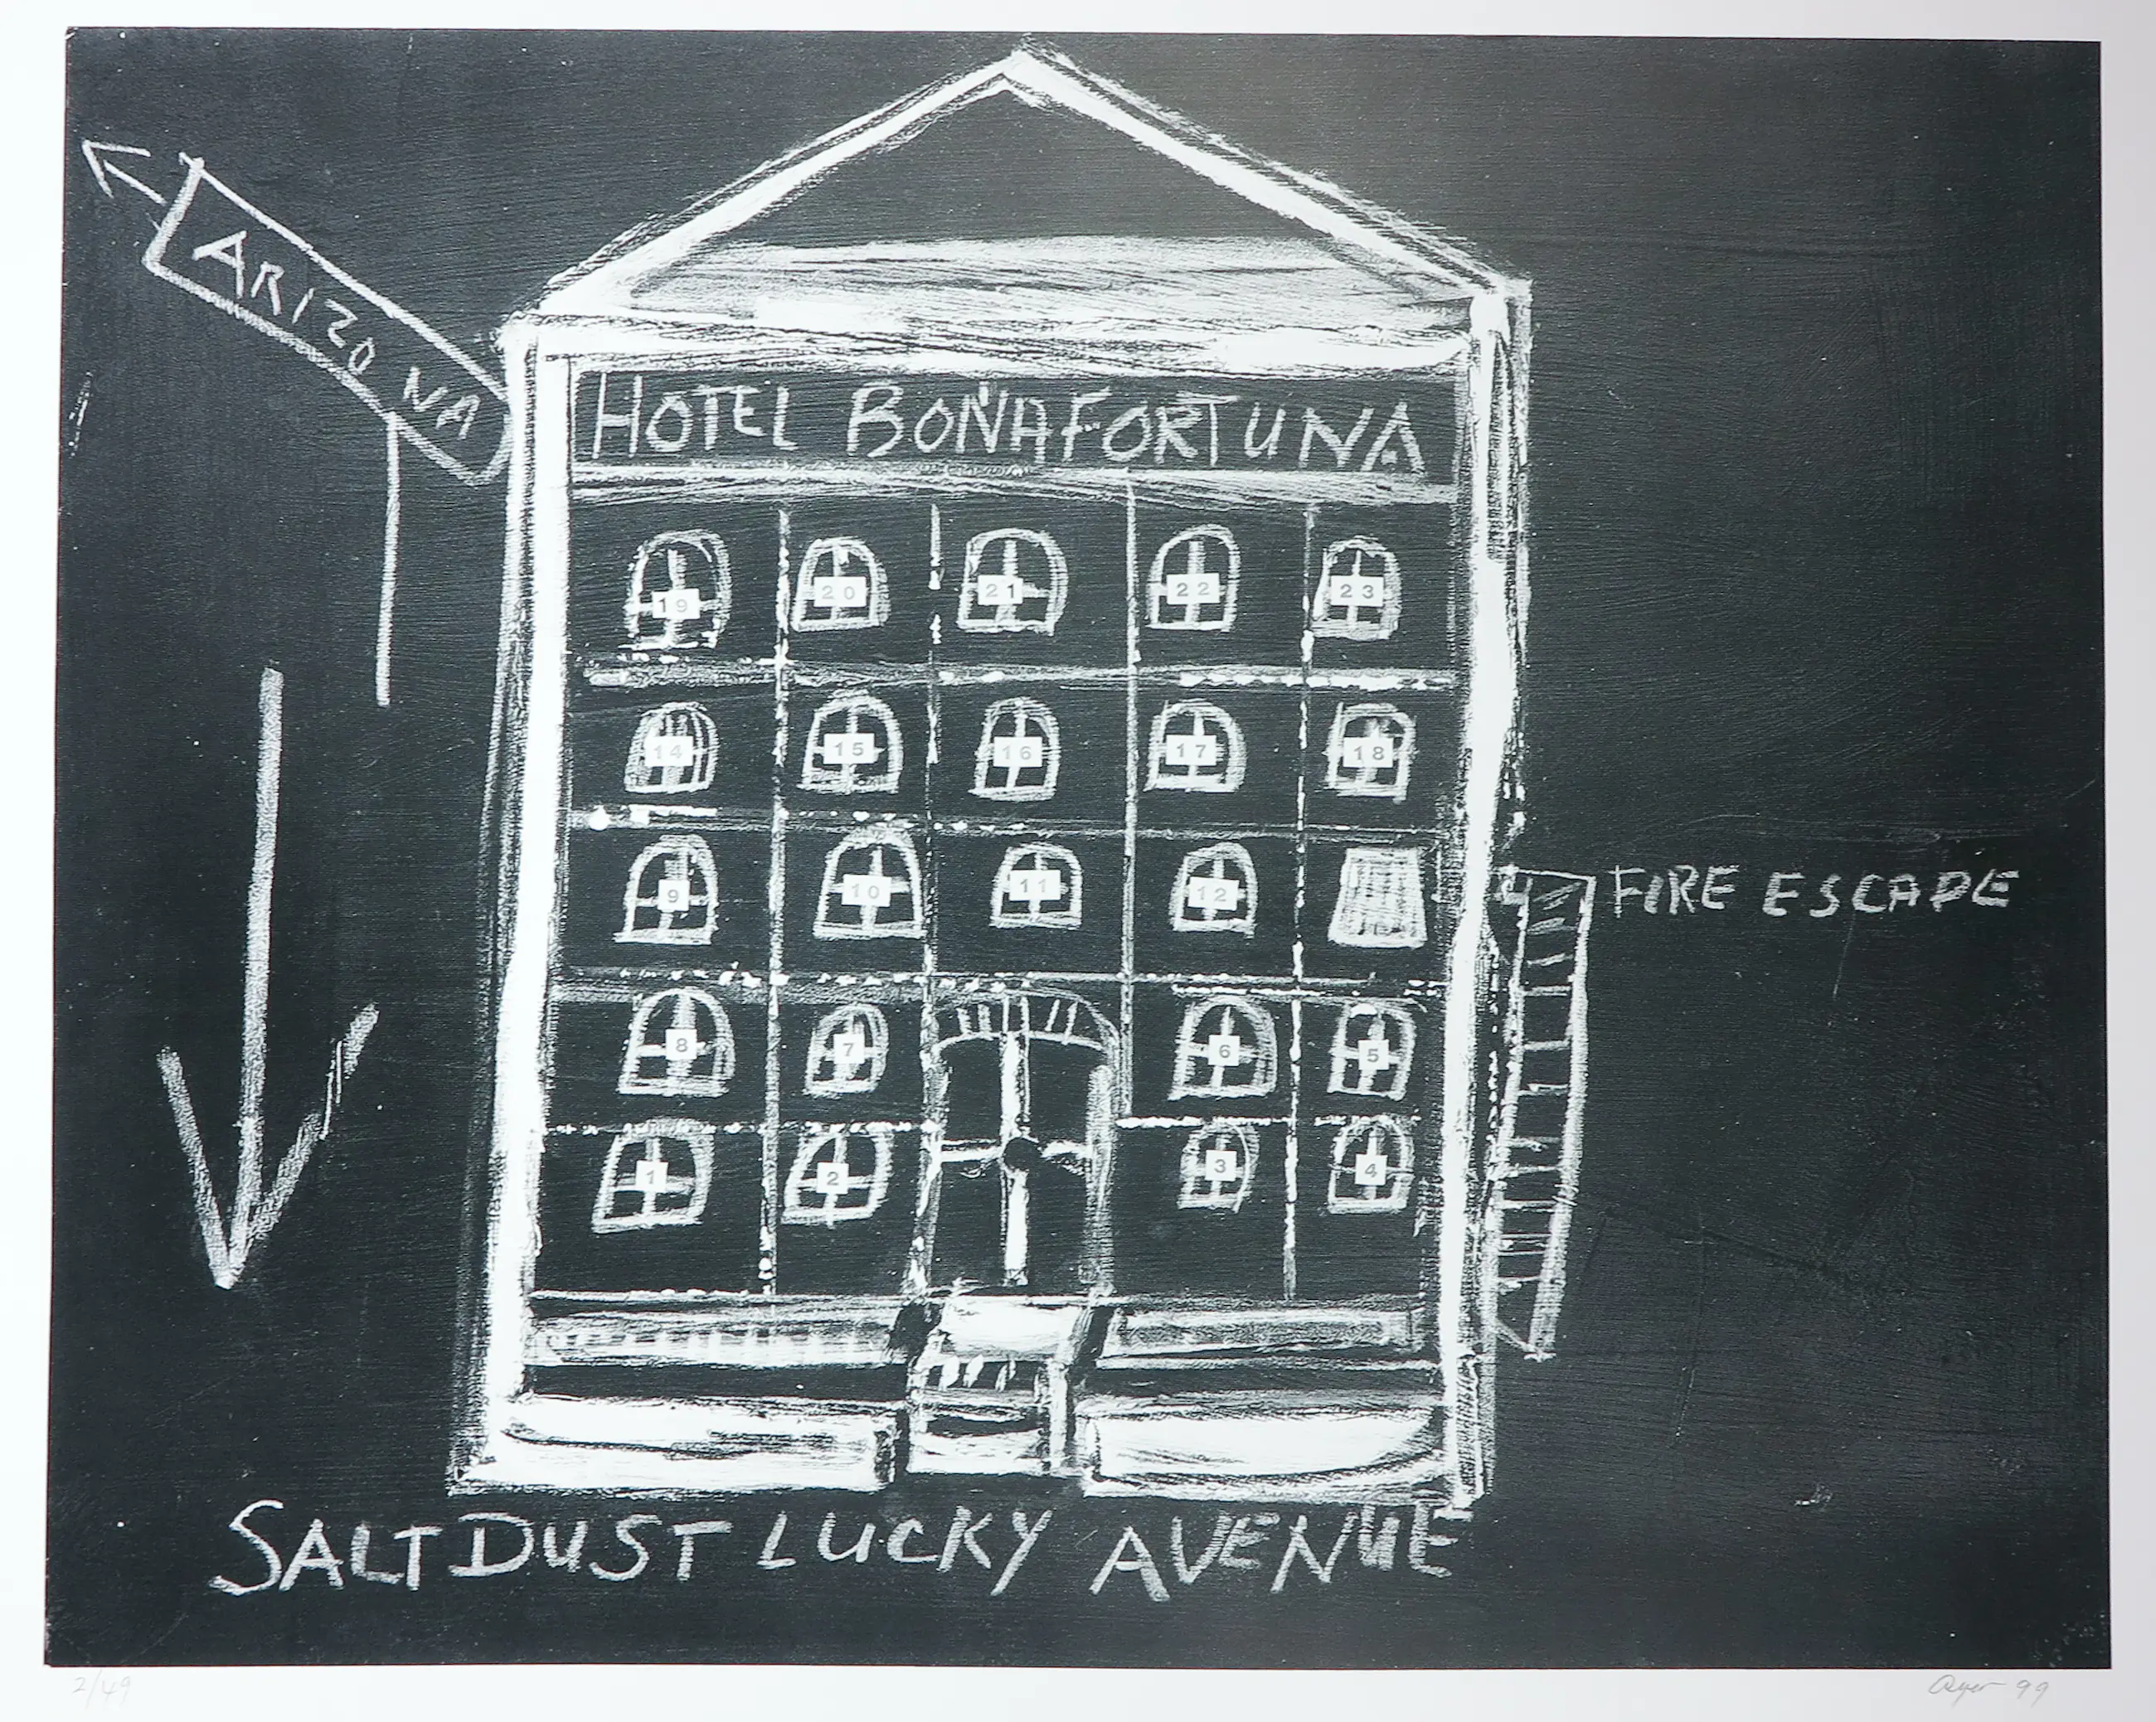 ARIZONA
HOTEL BOÑAFORTUNA
19 20 21 22 23
14 15 16 17 18
9 10 11 12
FIRE ESCAPE
8 7 6 5
1 2 3 4
SALT DUST LUCKY AVENUE
2/49
99